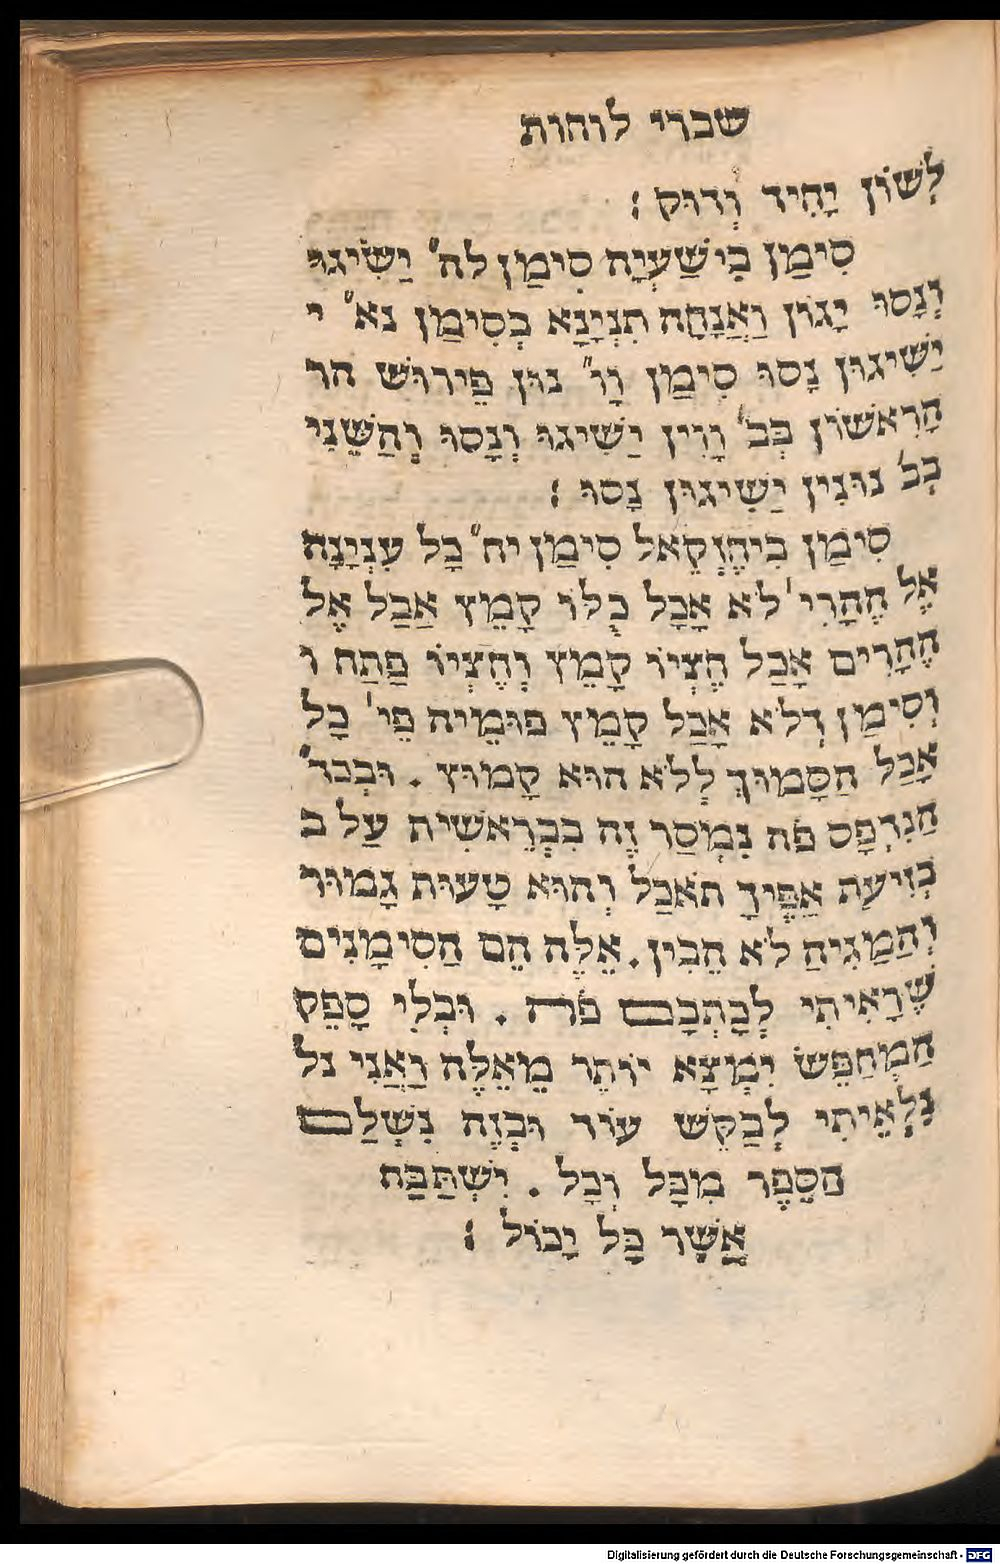 שברי לוחות
לְשׁוֹן יָחִיד וְדוּק :
סִימַן בִּישַׁעְיָה סִימַן לה֞ יַשִּׂיגוּ
וְנָסוּ יָגוֹן וַאֲנָחָה תִנְיָנָא בְּסִימַן נא֞ י
יַשִּׂיגוּן נָסוּ סִימַן וָו֞ נוּן פֵּירוּשׁ הר
הָרִאשׁוֹן בְּב֞ וָוִין יַשִּׂיגוּ וְנָסוּ וְהַשֵּׁנִי
בְּב֞ נוּנִין יַשִּׂיגוּן נָסוּ :
סִימַן בִּיחֶזְקֵאל סִימַן יח֞ כָּל עִנְיָנָה
אֶל הֶהָרִי׳ לֹא אָכָל כֻּלּוֹ קָמֵץ אֲבַל אֶל
הֶהָרִים אָכַל חֶצְיוֹ קָמֵץ וְחֶצְיוֹ פַּתַּח ו
וְסִימַן דְּלֹא אָכַל קָמֵץ פּוּמֵיהּ פֵּי׳ כָּל
אָכַל הַסָּמוּךְ לְלֹא הוּא קָמוּץ . וּבְכד֞
הַנִדְפָּס פֹּה נִמְסַר זֶה בִּבְרֵאשִׁית עַל ב
בְּזֵיעַת אַפֶּיךָ תֹּאכַל וְהוּא טָעוּת גָּמוּר
וְהַמַּגִּיהַּ לֹא הֵבִין . אֵלֶּה הֵם הַסִּימָנִים
שֶׁרָאִיתִי לְכָתְבָם פֹּה . וּבְלִי סָפֵק
הַמְחַפֵּשׂ יִמְצָא יוֹתֵר מֵאֵלֶּה וַאֲנִי נל
נִלְאֵיתִי לְבַקֵּשׁ עוֹד וּבָזֶה נִשְׁלַם
הַסֵּפֶר מִכָּל וְכָל . יִשְׁתַּבַּח
אֲשֶׁר כָּל יָכוֹל :
Digitalisierung gefördert durch die Deutsche Forschungsgemeinschaft - DFG